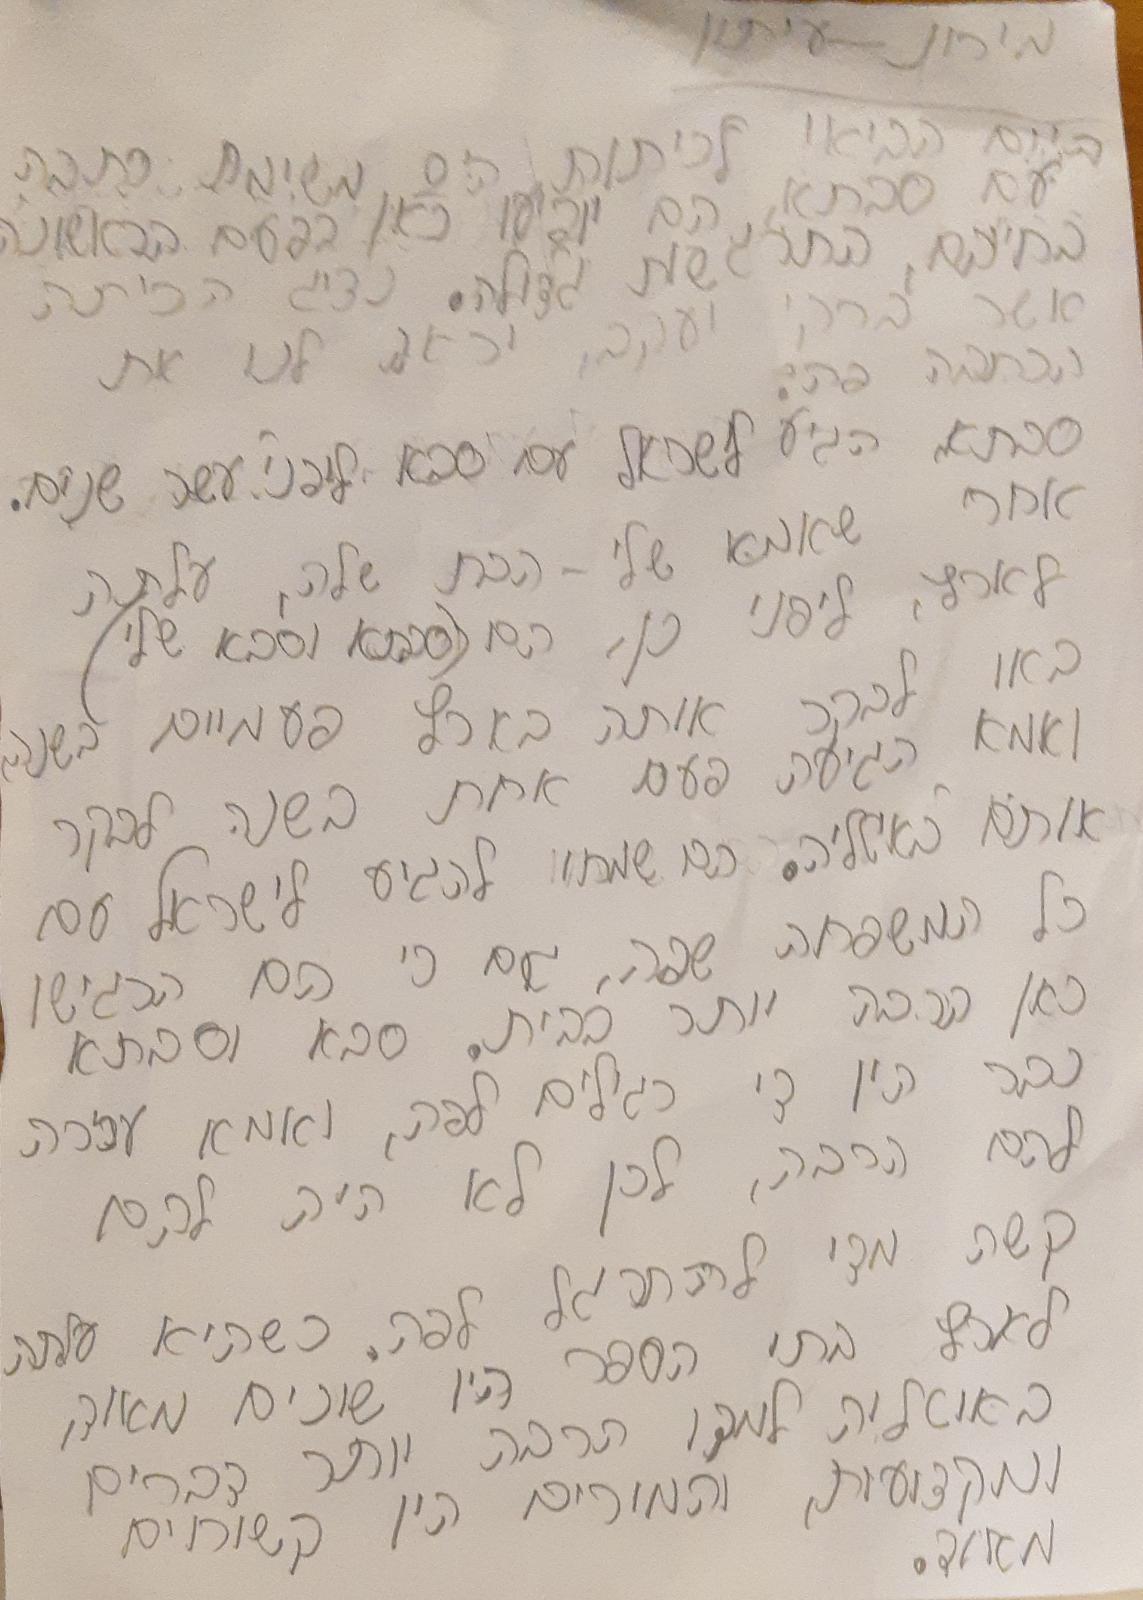 מירון - עיתון
היום הביאו לכיתות הם משימת כתבה
עם סבתא, הם יופיעו כאן בפעם הראשונה
בחייהם, התרגשות גדולה. נציג הכיתה
אשר ברקי יעקב, יראה לנו את
הכתבה
סבתא הגיע לשראל עם סבא ליפני עשר שנים.
אחרי שאמא שלי - הבת שלה, עלתה
לארץ, ליפני כן, הם (סבתא וסבא שלי)
באו לבקר אותה בארץ פעמיים בשנה,
ואמא הגיעה פעם אחת בשנה לבקר
אותם באיטליה. הם שמחו להגיע לישראל עם
כל המשפחה שפה, גם כי הם הרגישו
כאן הרבה יותר בבית. סבא וסבתא
כבר היו די רגילים לפה, ואמא עזרה
להם הרבה, לכן לא היה להם
קשה מדי להתרגל לפה. כשהיא עלתה
לארץ בתי הספר היו שונים מאוד,
באיטליה למדו הרבה יותר דברים
ומקצועות, והמורים היו קשוחים
מאוד.